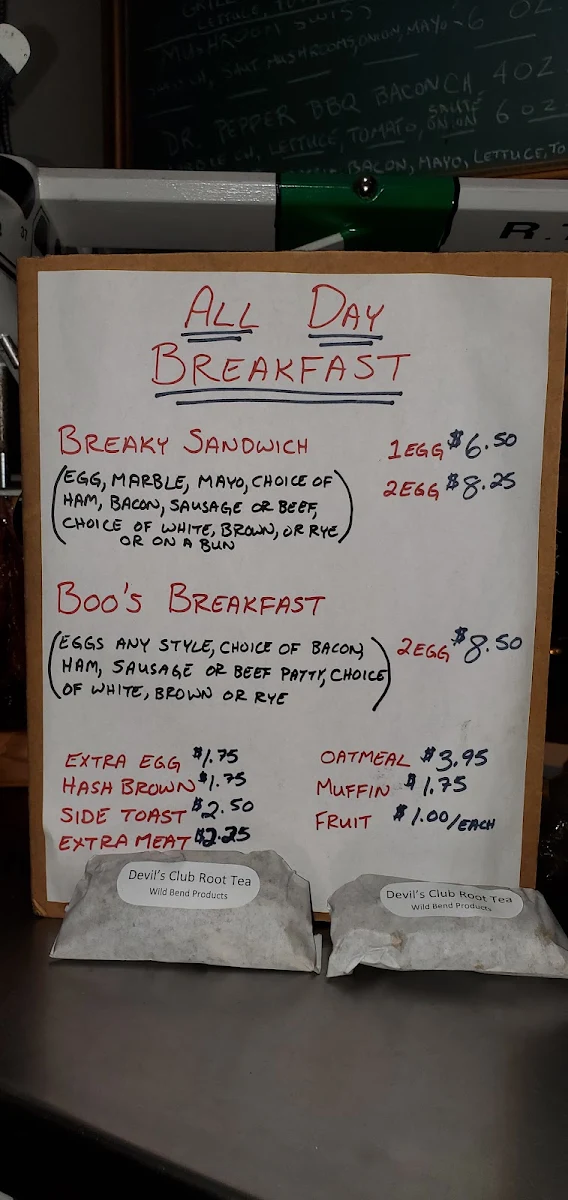 LETTUCE, TO
MUSHROOM SWISS
SAUT MUSHROOMS, ONION, MAYO - 6 OZ
DR. PEPPER BBQ BACON CH 4OZ
LETTUCE, TOMATO, SAUTÉ ONION 6 OZ
BACON, MAYO, LETTUCE, TO
R.T
27
ALL DAY
BREAKFAST
BREAKY SANDWICH 1EGG $6.50
2EGG $8.25
(EGG, MARBLE, MAYO, CHOICE OF
HAM, BACON, SAUSAGE OR BEEF,
CHOICE OF WHITE, BROWN, OR RYE
OR ON A BUN)
BOO'S BREAKFAST
2EGG $8.50
(EGGS ANY STYLE, CHOICE OF BACON,
HAM, SAUSAGE OR BEEF PATTY, CHOICE
OF WHITE, BROWN OR RYE)
EXTRA EGG $1.75
HASH BROWN $1.75
SIDE TOAST $2.50
EXTRA MEAT $2.25
OATMEAL $3.95
MUFFIN $1.75
FRUIT $1.00/EACH
Devil's Club Root Tea
Wild Bend Products
Devil's Club Root Tea
Wild Bend Products